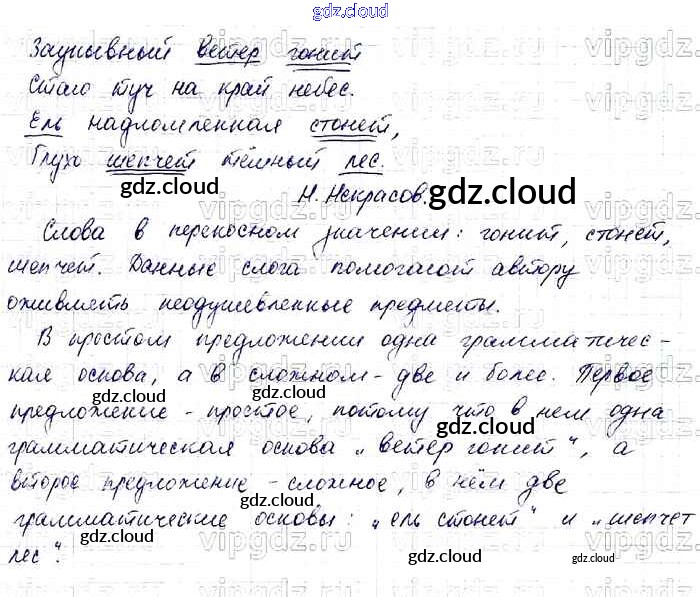 gdz.cloud
Заунывный ветер гонит
Стаю туч на край небес.
Ель надломленная стонет,
Глухо шепчет тёмный лес.
gdz.cloud
Н. Некрасов. gdz.cloud
Слова в переносном значении: гонит, стонет,
шепчет. Данные слога помогают автору
gdz.cloud gdz.cloud
оживлять неодушевленные предметы.
В простом предложении одна грамматичес-
кая основа, а в сложном - две и более. Первое
gdz.cloud gdz.cloud
предложение - простое, потому что в нем одна
gdz.cloud
грамматическая основа „ветер гонит“, а
второе предложение - сложное, в нём две
gdz.cloud gdz.cloud
грамматические основы: „ель стонет“ и „шепчет
лес“.
gdz.cloud gdz.cloud gdz.cloud